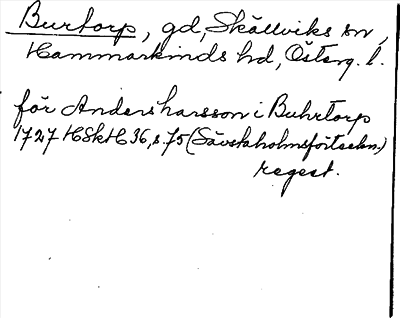 Burtorp, gd, Skällviks sn,
Hammarkinds hd, Österg. l.
för Anders hansson i Buhrtorp
1727 HSkH 36, s. 75 (Säfstaholmsförteckn.)
regest.